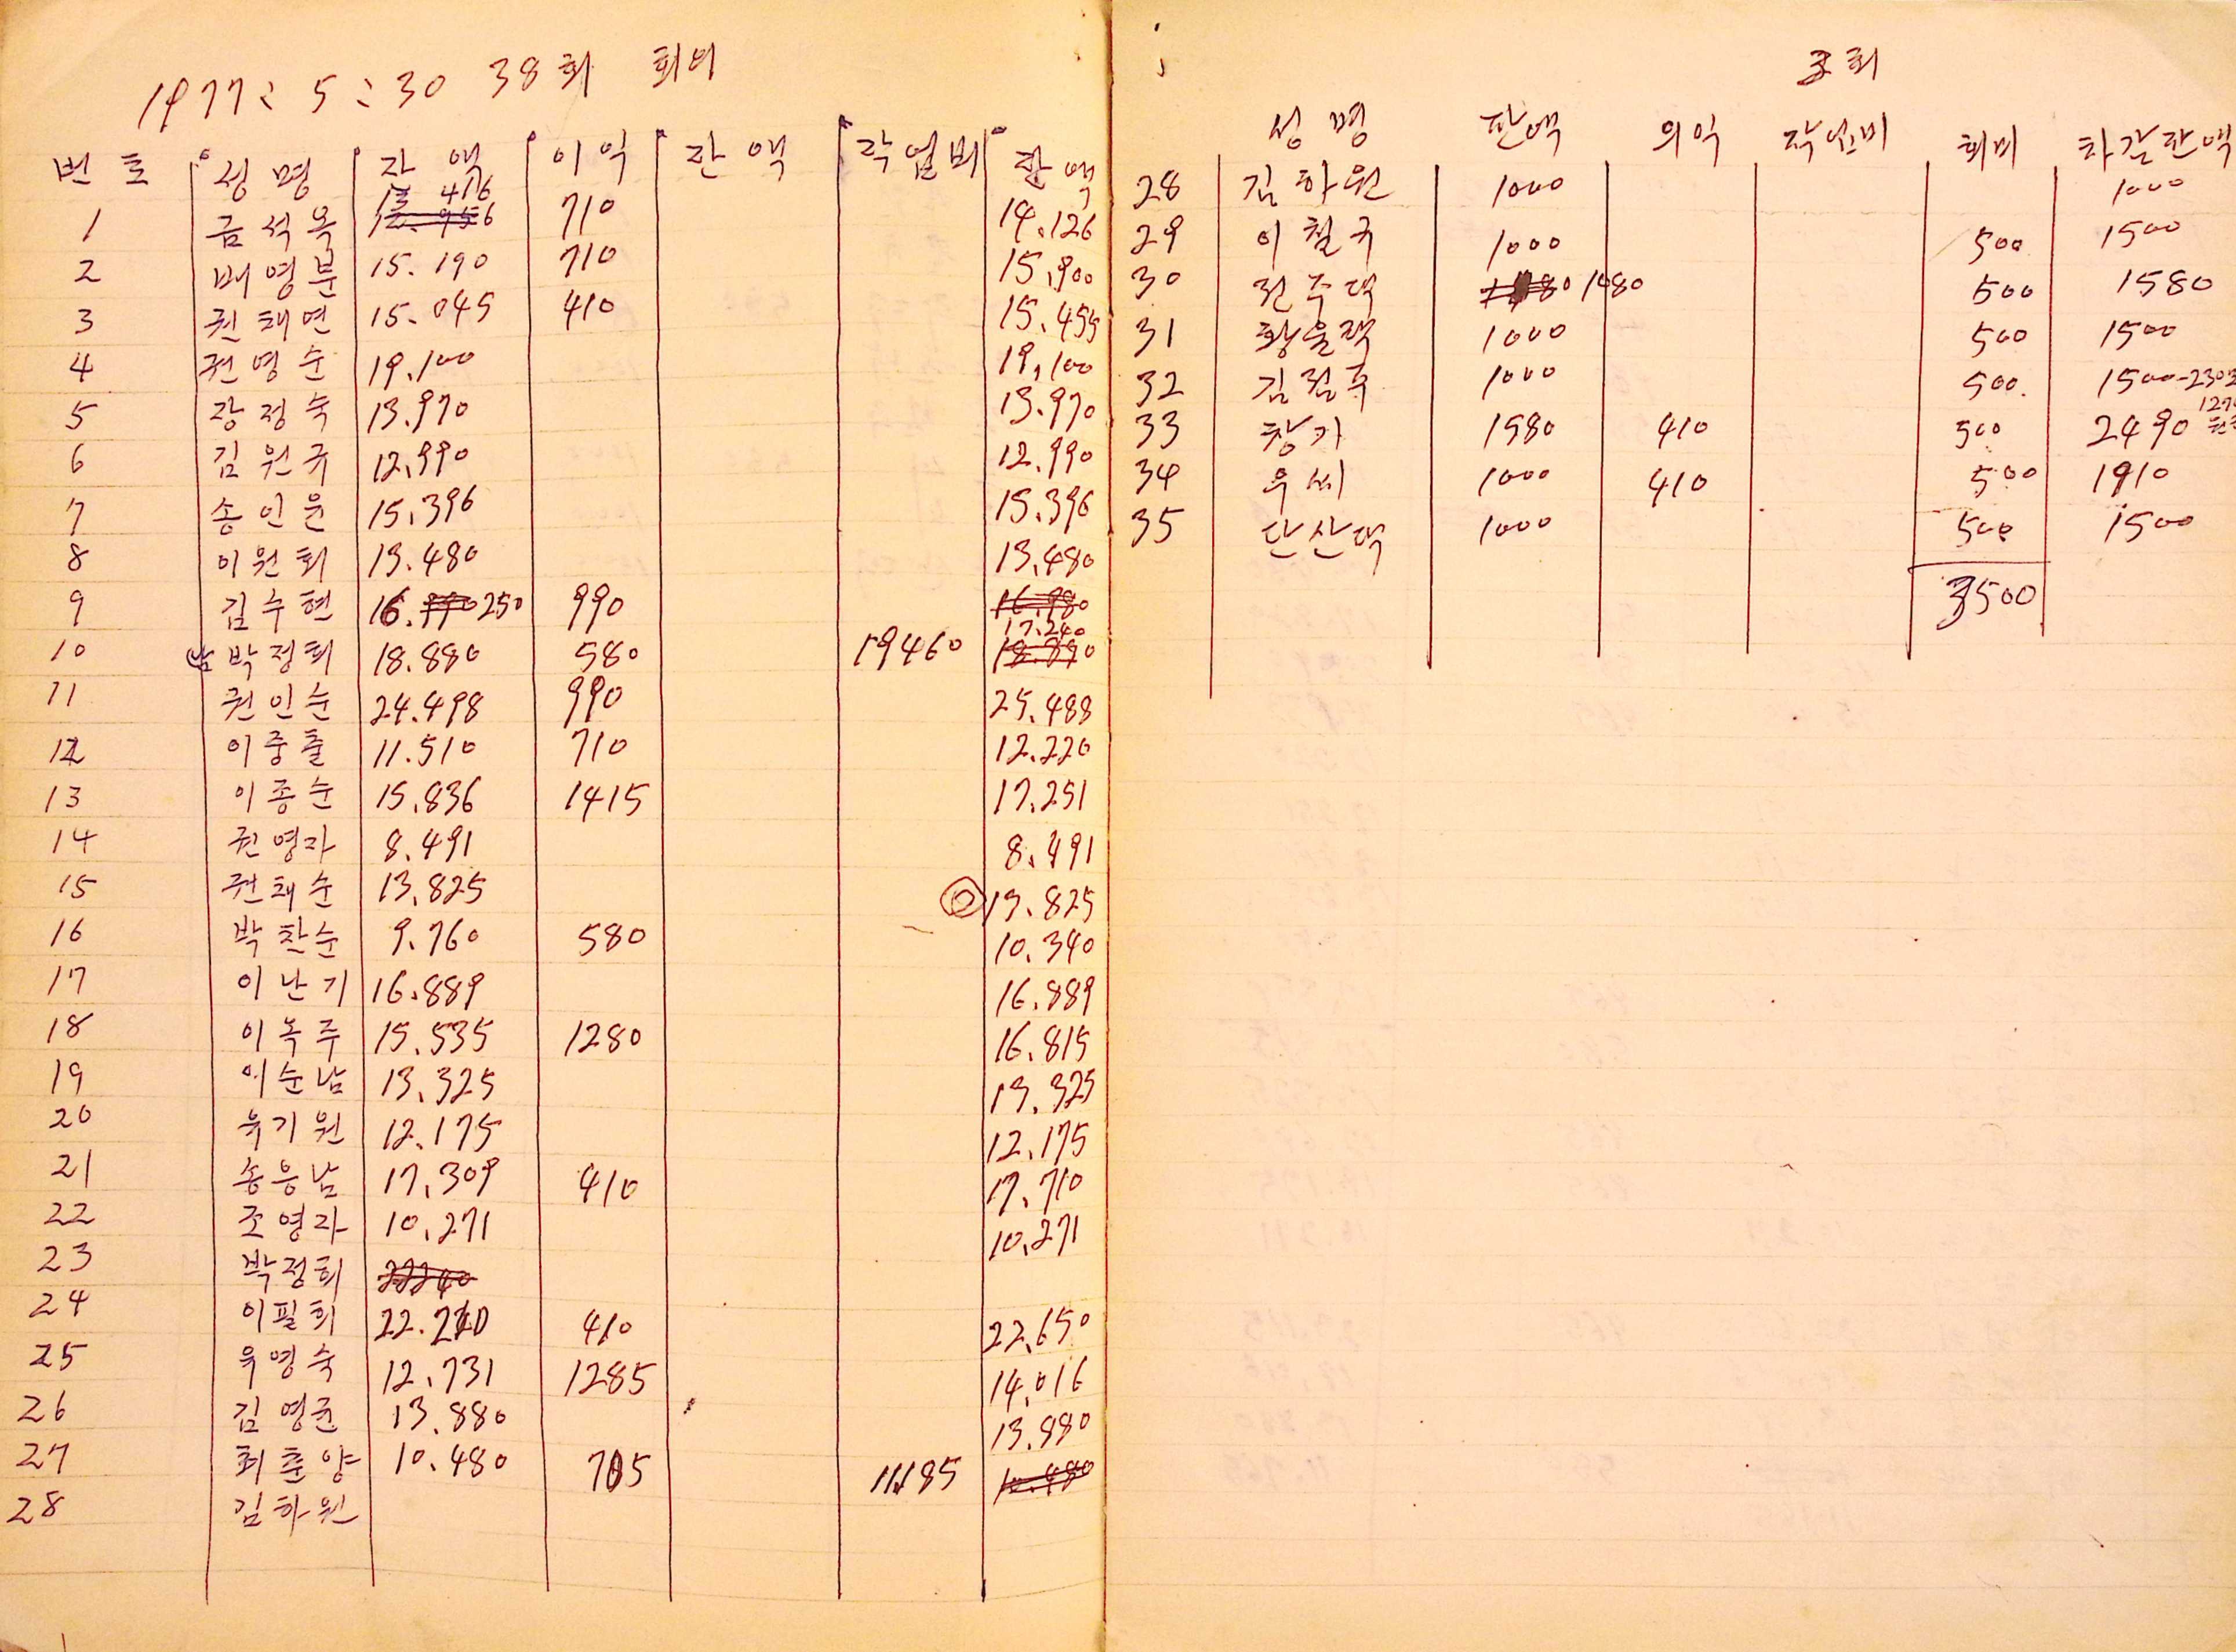 1977 : 5 : 30 38회 회비
번호 성명 잔액 이익 잔액 작업비 잔액
1 금석옥 13.416 710 14.126
2 배영분 15.190 710 15,900
3 권태연 15.045 410 15.455
4 권영순 19.100 19,100
5 장정숙 13.970 13.970
6 김원규 12.990 12.990
7 송인윤 15.396 15.396
8 이원회 13.480 13,480
9 김수현 16.250 990 16.980 17.240
10 남 박정희 18.880 580 19460
11 권인순 24.498 990 25.488
12 이중출 11.510 710 12.220
13 이종순 15.836 1415 17.251
14 권영자 8.491 8.491
15 권태순 13.825 13.825
16 박찬순 9.760 580 10.340
17 이난기 16.889 16.889
18 이옥주 15.535 1280 16.815
19 이순남 13.325 13.325
20 육기원 12.175 12.175
21 송응남 17.309 410 17.710
22 조영자 10.271 10.271
23 박정희 22240
24 이필희 22.240 410 22.650
25 우영숙 12.731 1285 14.016
26 김영군 13.880 13.880
27 최춘양 10.480 705 11.185 10.480
28 김하원
3회
성명 잔액 의익 작업비 회비 차감잔액
28 김하원 1000 1000
29 이철규 1000 500 1500
30 전주댁 1080 500 1580
31 황을댁 1000 500 1500
32 김점주 1000 500. 1500-230
33 창가 1580 410 500 2490
34 우씨 1000 410 500 1910
35 단산댁 1000 500 1500
3500